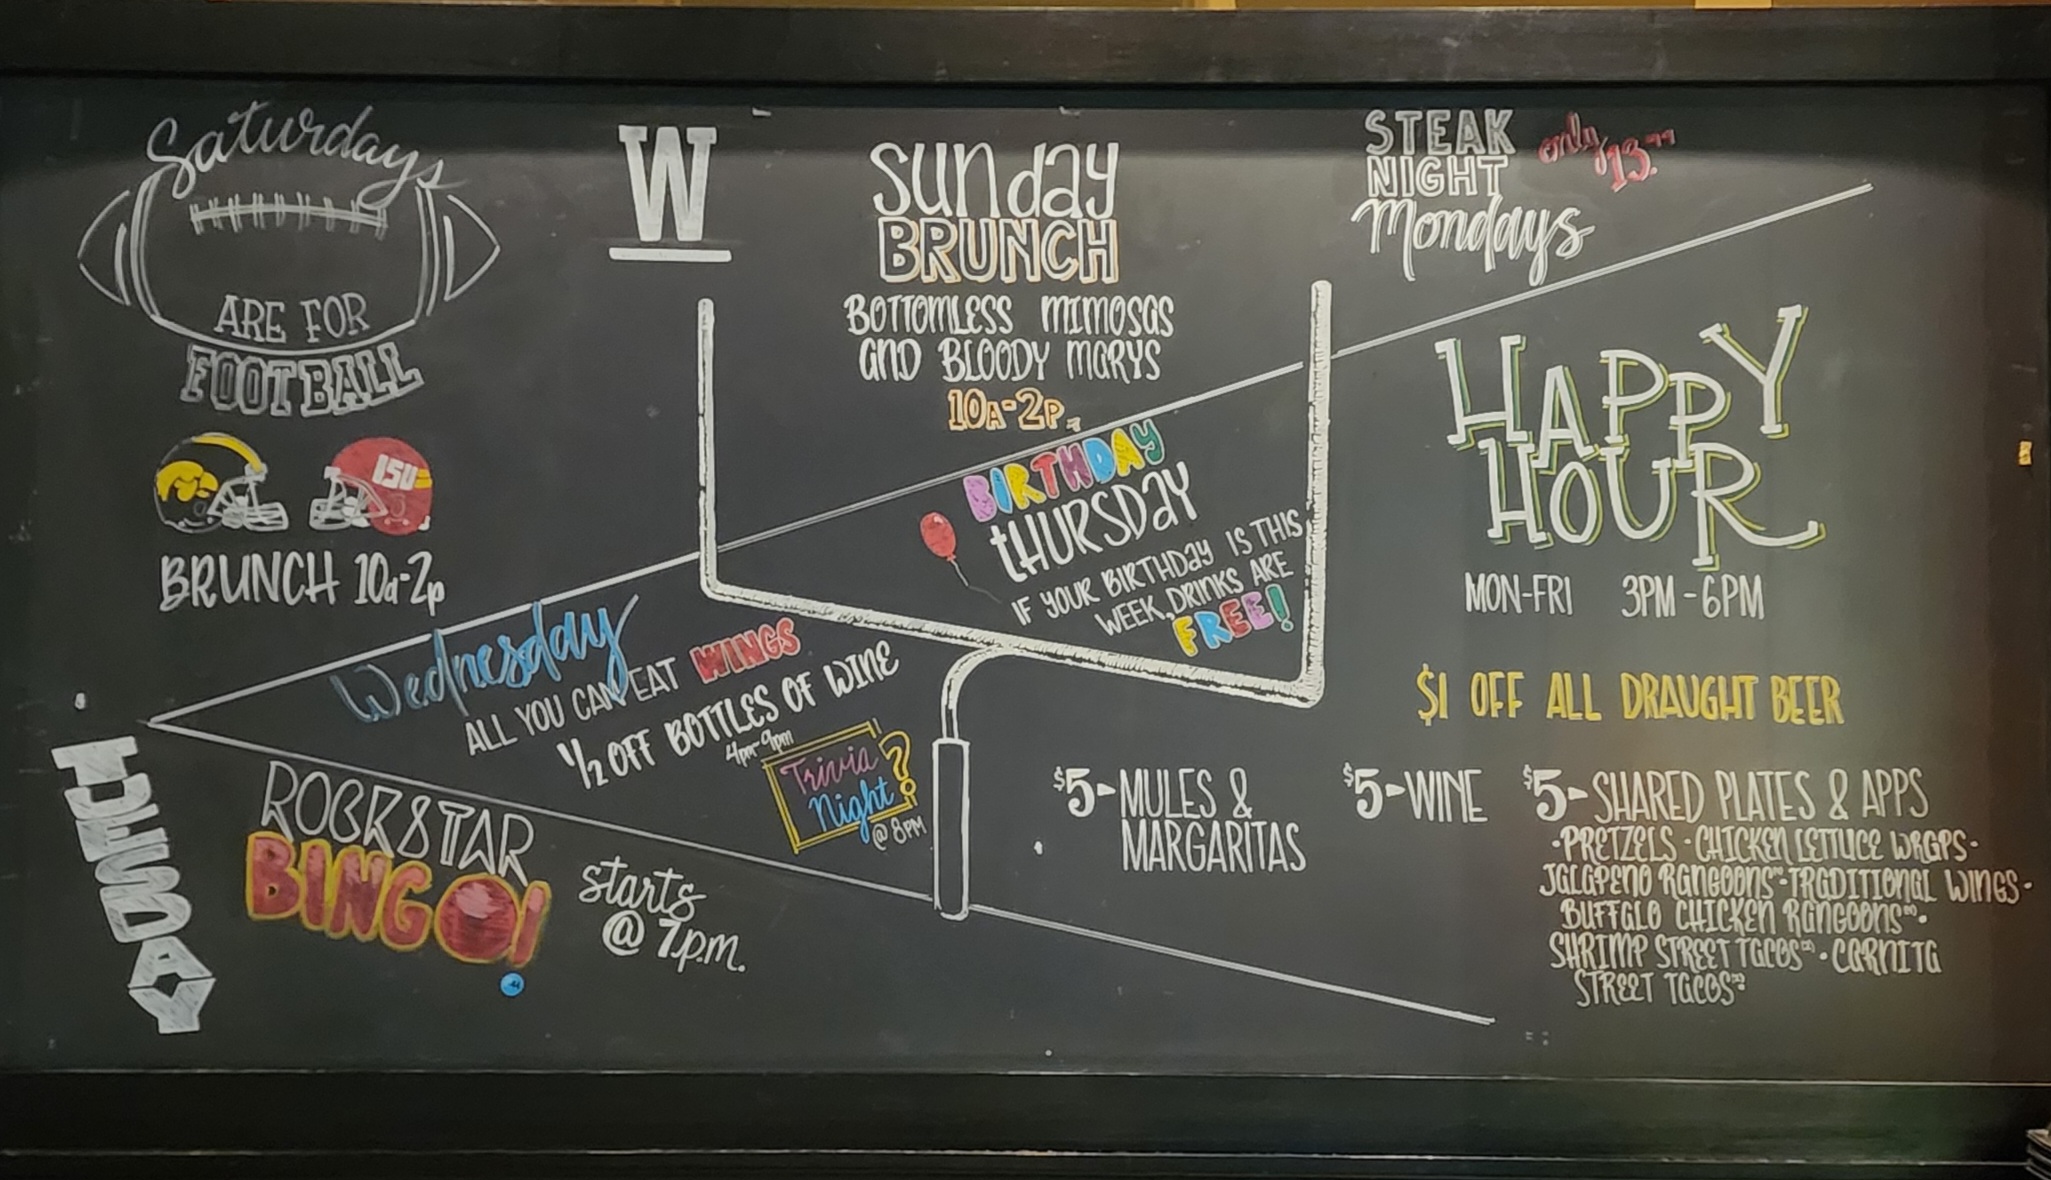 Saturdays
ARE FOR
FOOTBALL
ISU
BRUNCH 10a-2p
W
Sunday
BRUNCH
BOTTOMLESS MIMOSAS
AND BLOODY MARYS
10A-2P
STEAK
NIGHT
Mondays
only
13.99
BIRTHDAY
THURSDAY
IF YOUR BIRTHDAY IS THIS
WEEK, DRINKS ARE
FREE!
HAPPY
HOUR
MON-FRI 3PM-6PM
$1 OFF ALL DRAUGHT BEER
$5-MULES &
MARGARITAS
$5-WINE
$5-SHARED PLATES & APPS
·PRETZELS·CHICKEN LETTUCE WRAPS·
JALAPENO RANGOONS·TRADITIONAL WINGS·
BUFFALO CHICKEN RANGOONS·
SHRIMP STREET TACOS·CARNITA
STREET TACOS
Wednesday
ALL YOU CAN EAT WINGS
1/2 OFF BOTTLES OF WINE
4pm-9pm
Trivia
Night?
@ 8PM
TUESDAY
ROCKSTAR
BINGO!
starts
@ 7p.m.